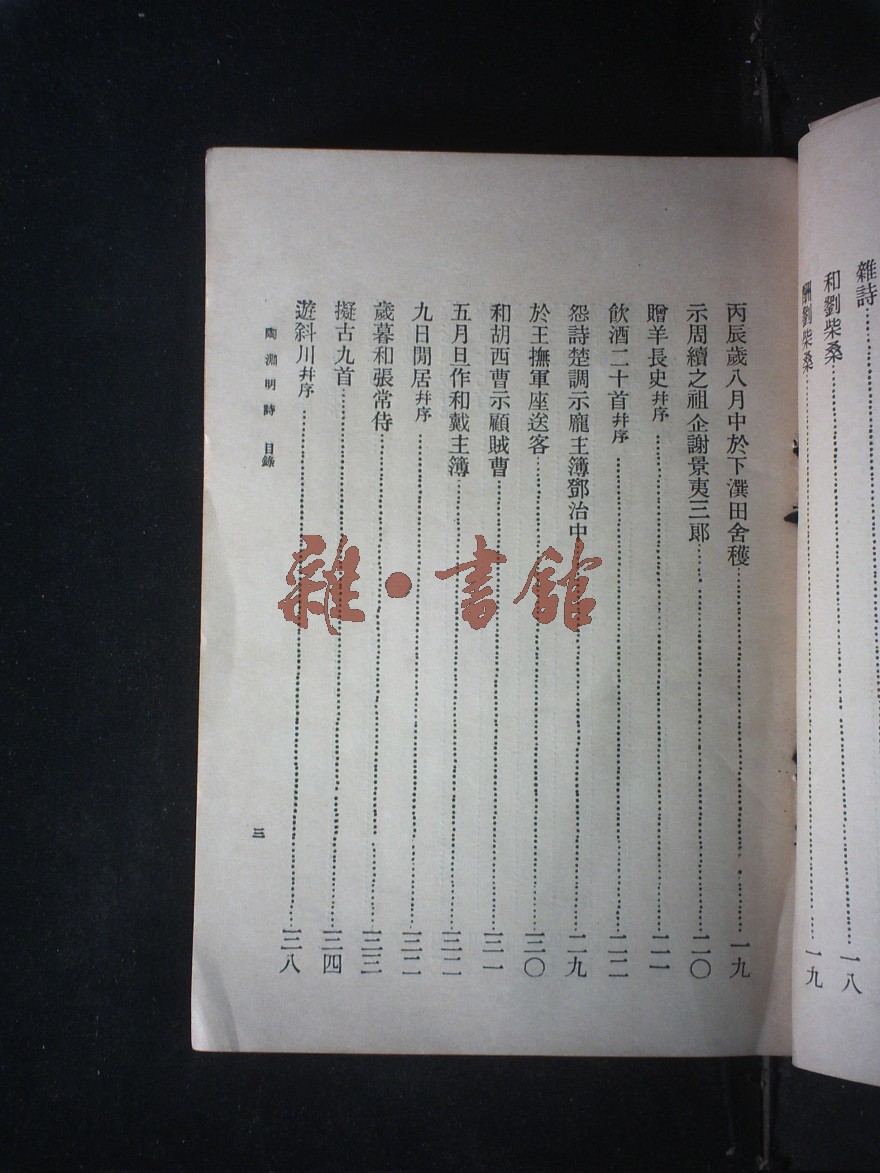 雜詩
和劉柴桑 一八
酬劉柴桑 一九
丙辰歲八月中於下潠田舍穫 一九
示周續之祖企謝景夷三郎 二〇
贈羊長史幷序 二一
飲酒二十首幷序 二二
怨詩楚調示龐主簿鄧治中 二九
於王撫軍座送客 三〇
和胡西曹示顧賊曹 三一
五月旦作和戴主簿 三二
九日閒居幷序 三二
歲暮和張常侍 三三
擬古九首 三四
遊斜川幷序 三八
陶淵明詩 目錄
三
雜·書館